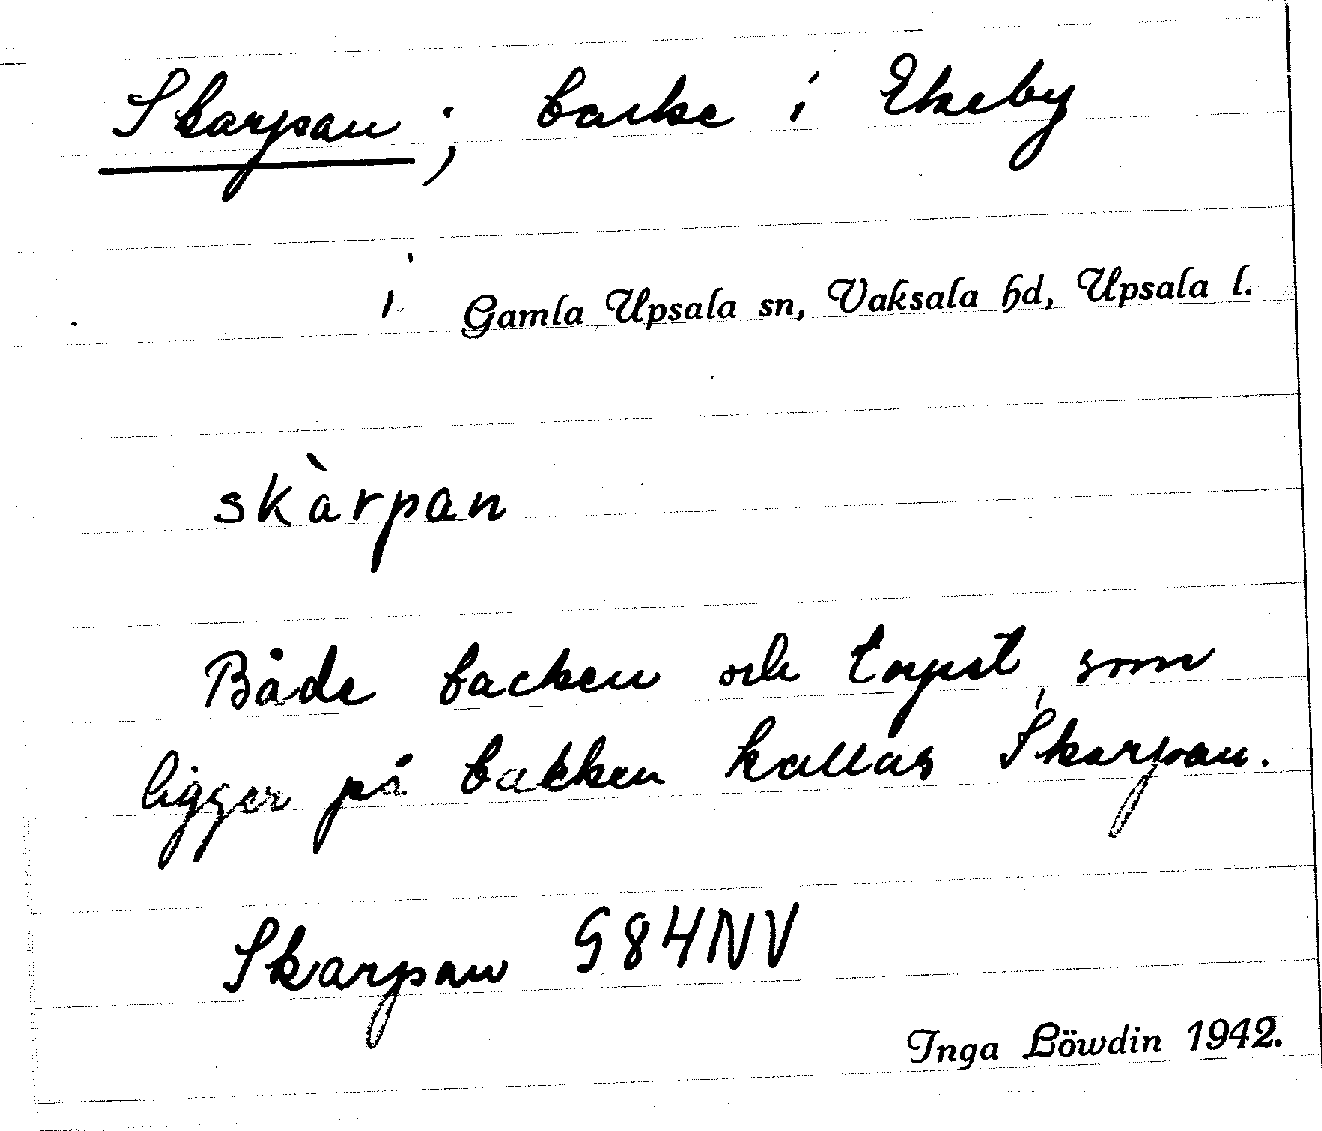 Skarpan; backe i Ekeby
i Gamla Upsala sn, Vaksala hd, Upsala l.
skàrpan
Både backen och torpet, som
ligger på backen kallas Skarpan.
Skarpan G84NV
Inga Löwdin 1942.